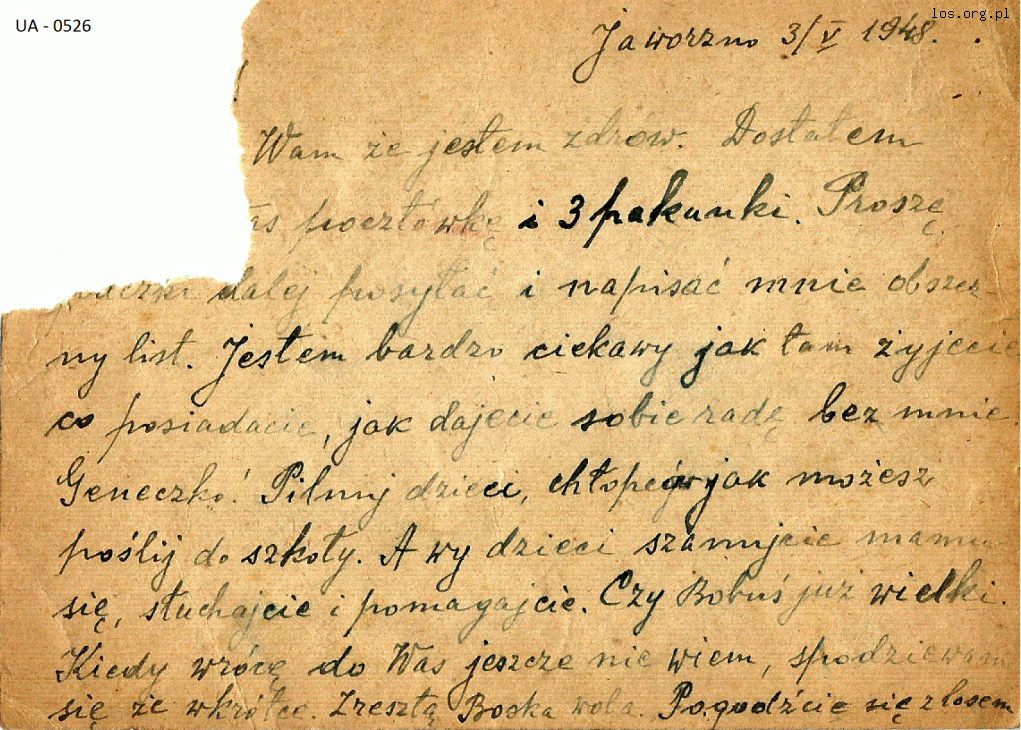 UA - 0526
los.org.pl
Jaworzno 3/V 1948.
Wam że jestem zdrów. Dostałem
pocztówkę i 3 pakunki. Proszę
dalej posyłać i napisać mnie obszer-
ny list. Jestem bardzo ciekawy jak tam żyjecie
co posiadacie, jak dajecie sobie radę bez mnie.
Geneczko! Pilnuj dzieci, chłopców jak możesz
poślij do szkoły. A wy dzieci szanujcie
się, słuchajcie i pomagajcie. Czy Bobuś już wielki.
Kiedy wrócę do Was jeszcze nie wiem, spodziewam
się że wkrótce. Zresztą Boska wola. Pogodźcie się z losem